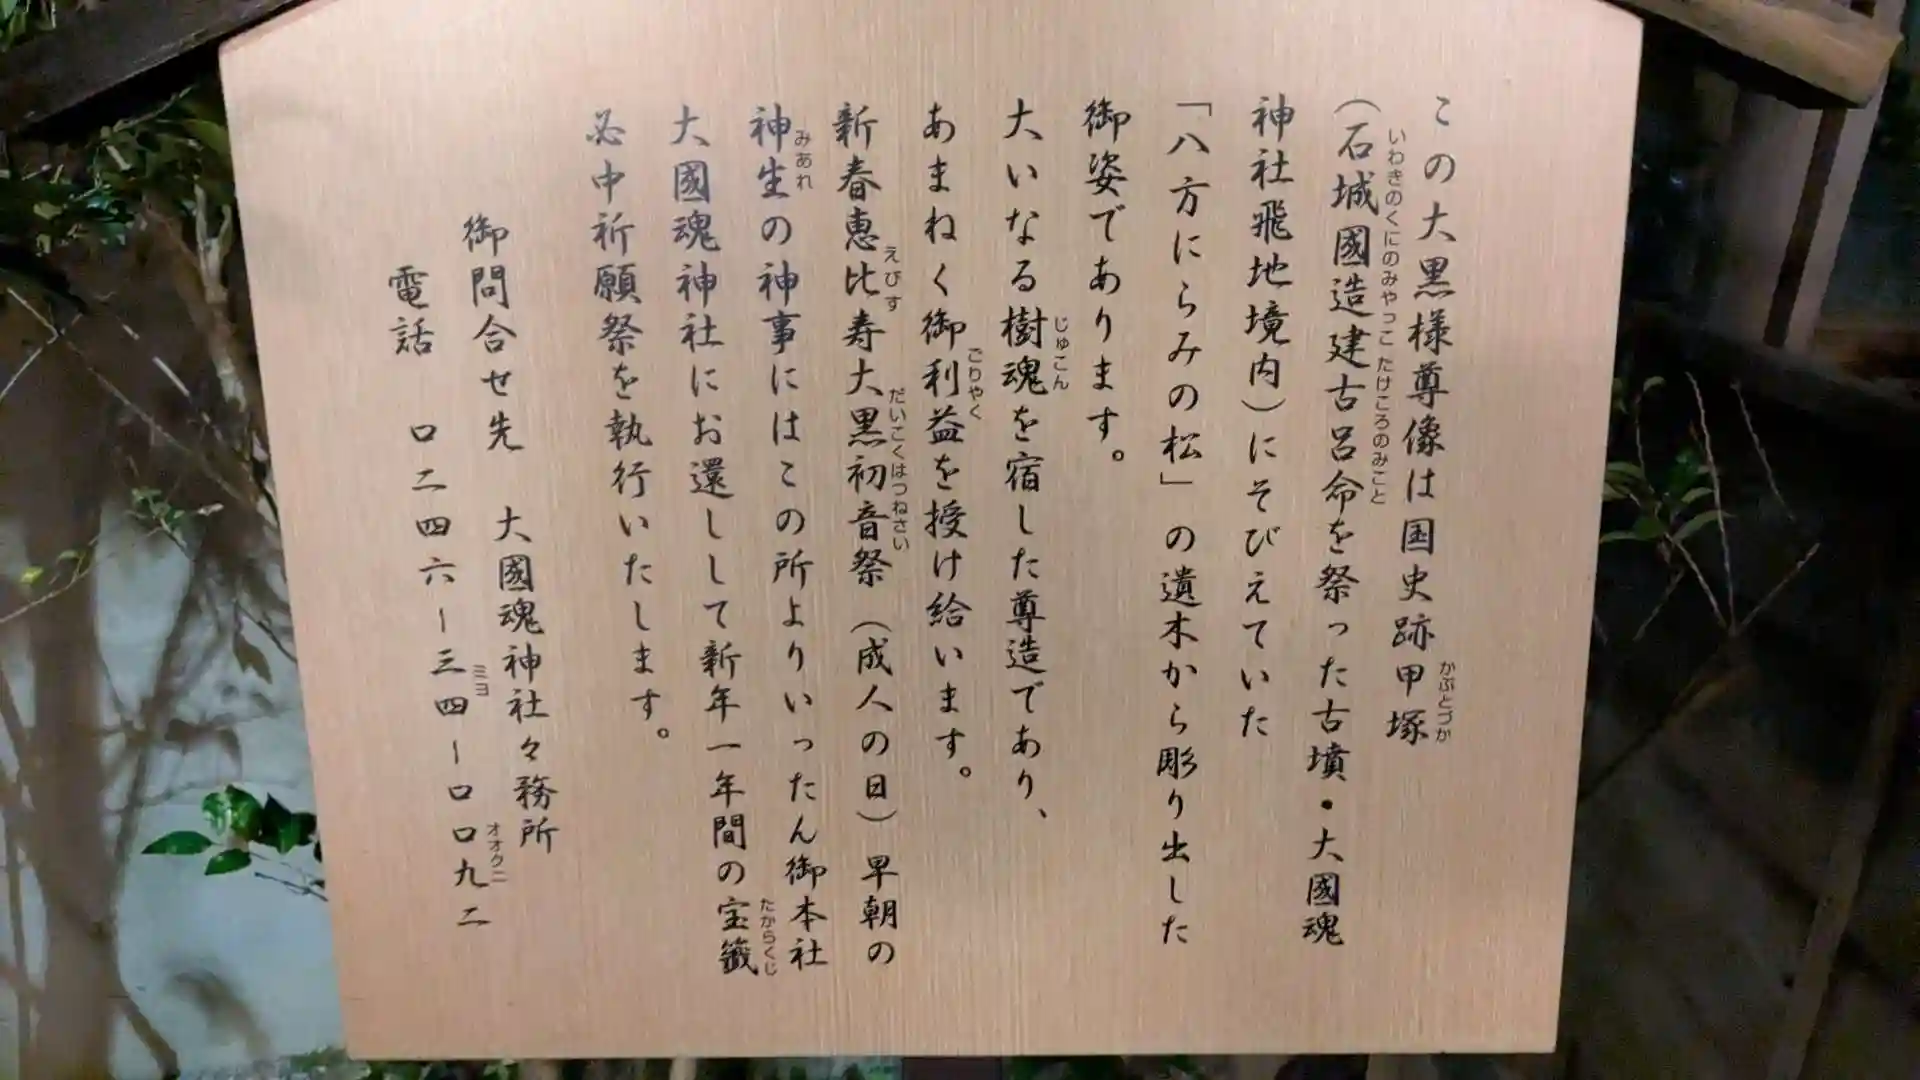 この大黒様尊像は国史跡甲塚
かぶとづか
（石城國造建古呂命を祭った古墳・大國魂
いわきのくにのみやっこ たけころのみこと
神社飛地境内）にそびえていた
「八方にらみの松」の遺木から彫り出した
御姿であります。
大いなる樹魂を宿した尊造であり、
じゅこん
あまねく御利益を授け給います。
ごりやく
新春恵比寿大黒初音祭（成人の日）早朝の
えびす だいこくはつねさい
神生の神事にはこの所よりいったん御本社
みあれ
大國魂神社にお還しして新年一年間の宝籤
たからくじ
必中祈願祭を執行いたします。
御問合せ先 大國魂神社々務所
電話 ロ二四六ー三四ーロロ九二
ミヨ オオクニ